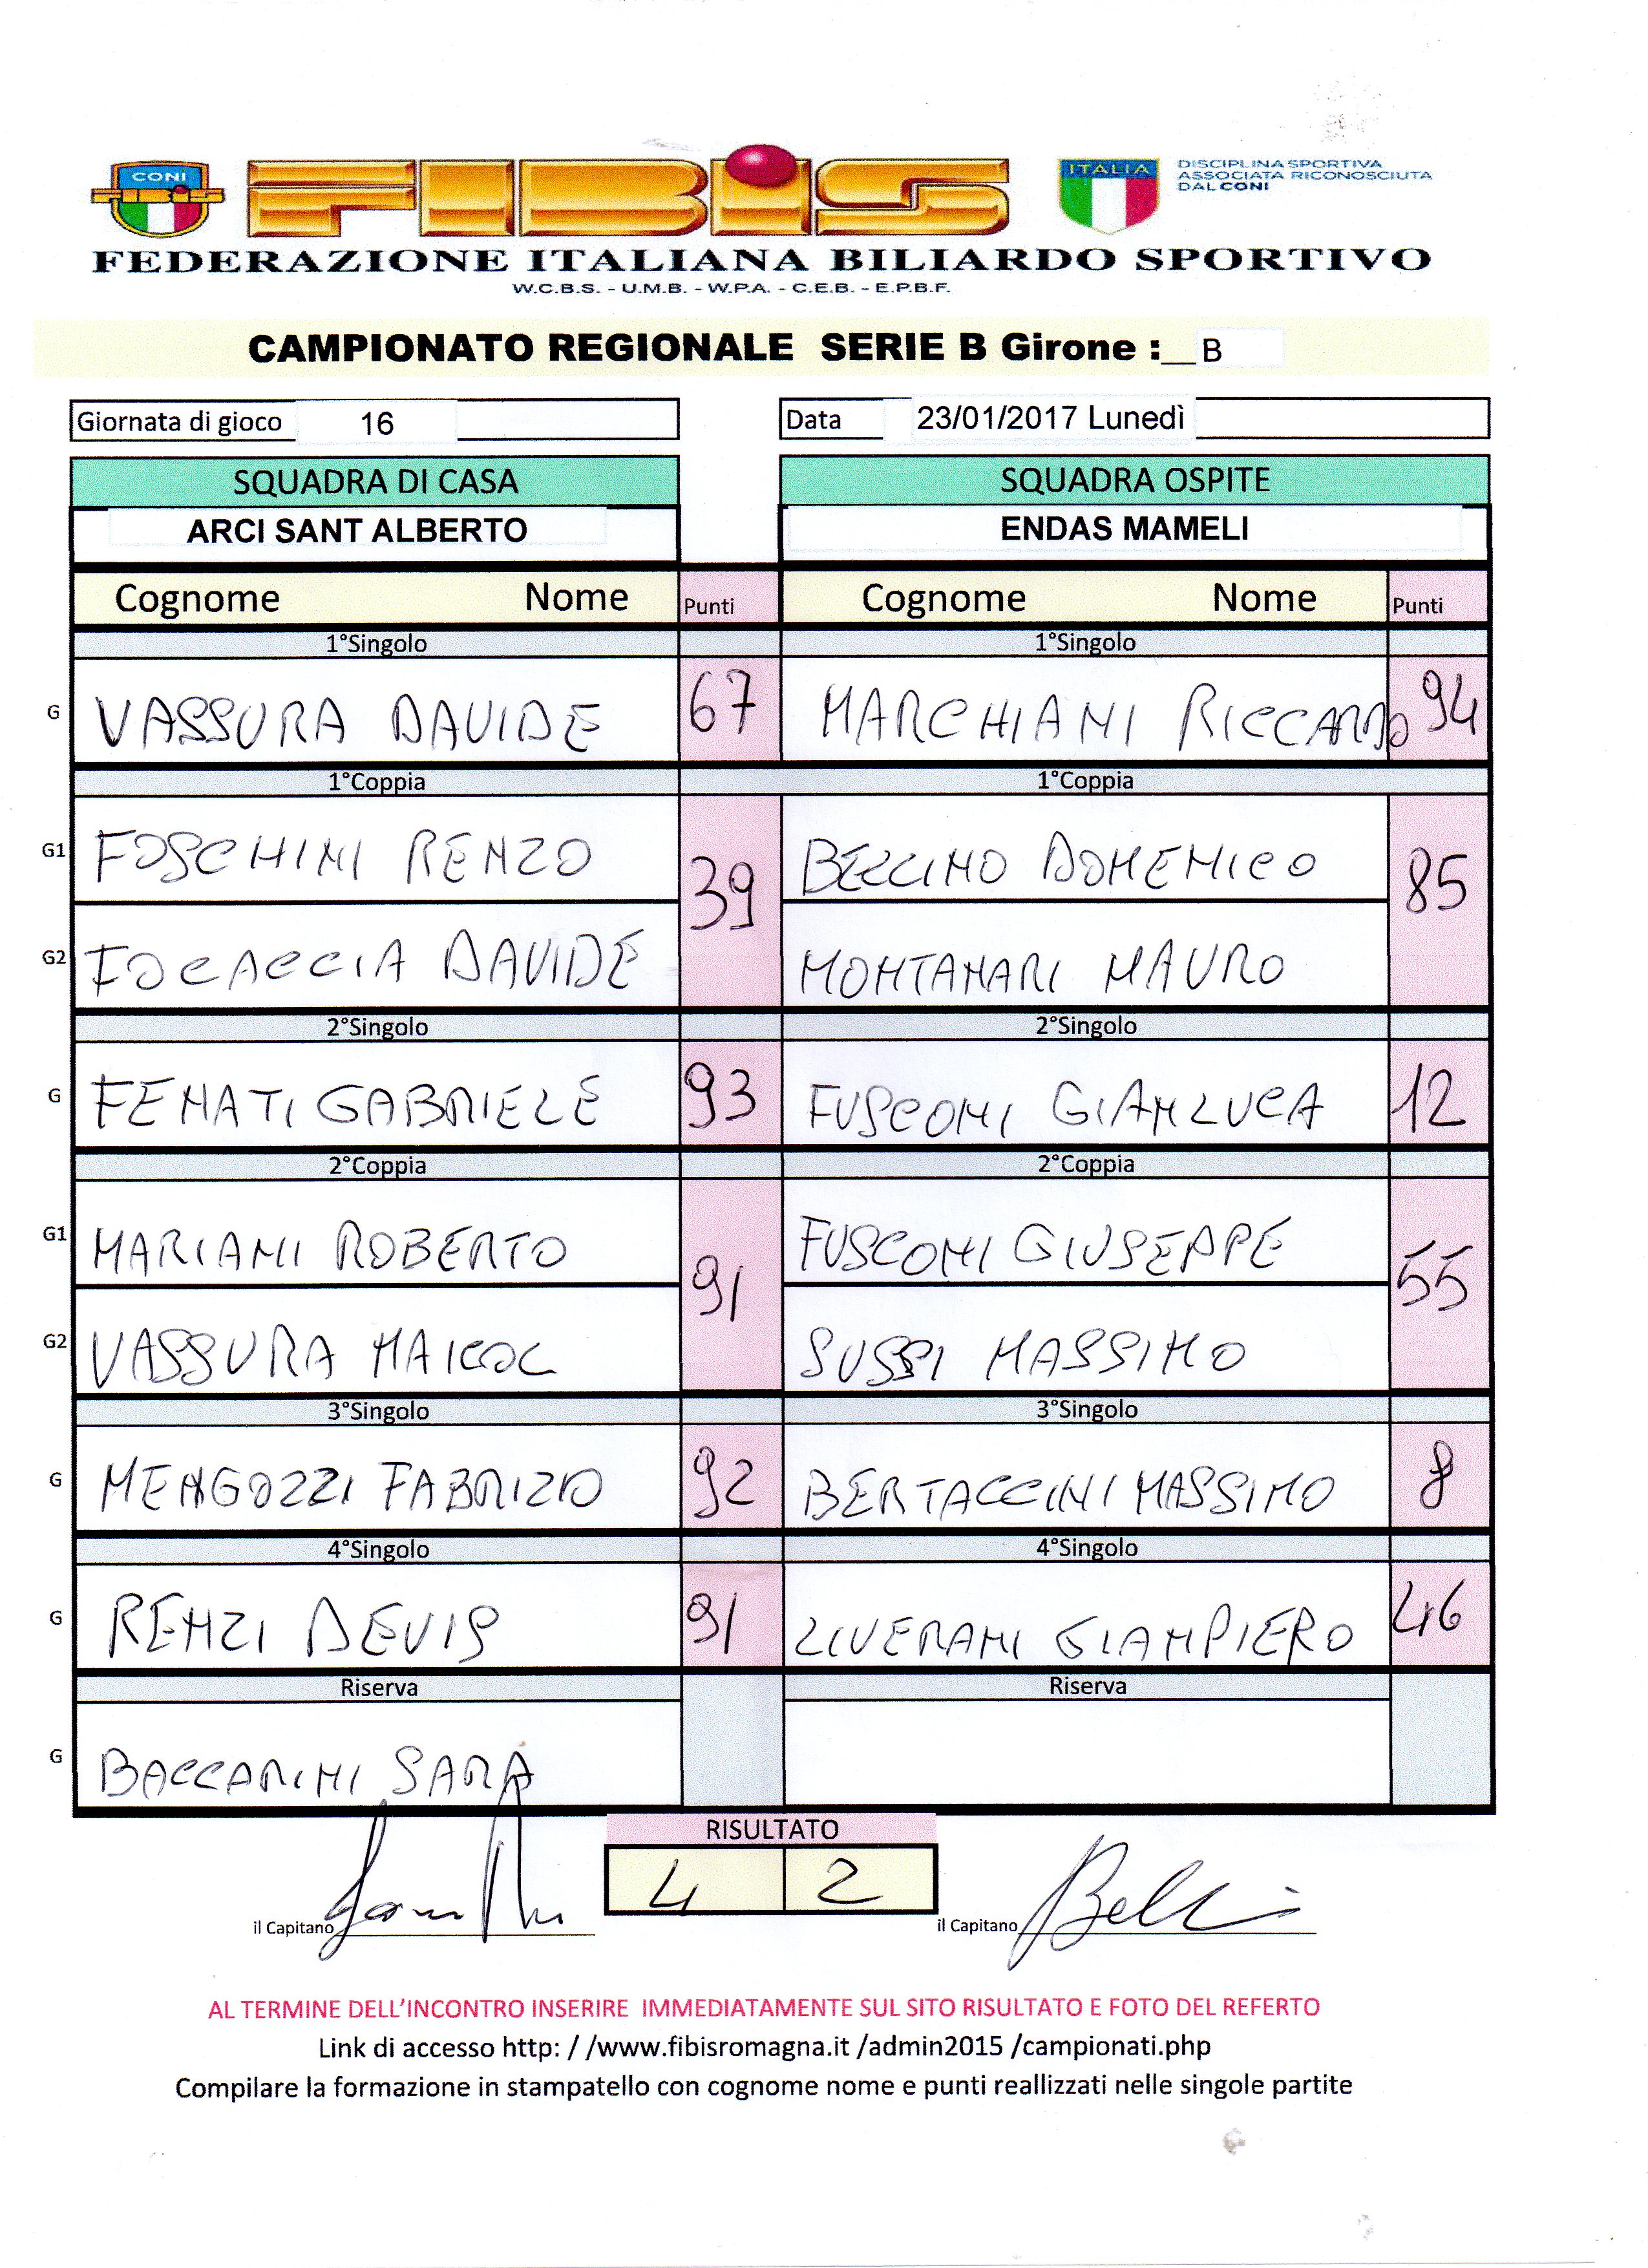 CONI
FIBIS
FIBiS
ITALIA
DISCIPLINA SPORTIVA
ASSOCIATA RICONOSCIUTA
DAL CONI
FEDERAZIONE ITALIANA BILIARDO SPORTIVO
W.C.B.S. - U.M.B. - W.P.A. - C.E.B. - E.P.B.F.
CAMPIONATO REGIONALE SERIE B Girone :__ B
Giornata di gioco 16 Data 23/01/2017 Lunedì
SQUADRA DI CASA SQUADRA OSPITE
ARCI SANT ALBERTO ENDAS MAMELI
Cognome Nome Punti Cognome Nome Punti
1°Singolo 1°Singolo
G VASSURA DAVIDE 67 MARCHIANI RICCARDO 94
1°Coppia 1°Coppia
G1 FOSCHINI RENZO 39 BELLINO DOMENICO 85
G2 FOCACCIA DAVIDE MONTANARI MAURO
2°Singolo 2°Singolo
G FENATI GABRIELE 93 FUSCONI GIANLUCA 12
2°Coppia 2°Coppia
G1 MARIANI ROBERTO 91 FUSCONI GIUSEPPE 55
G2 VASSURA MAICOL SUSSI MASSIMO
3°Singolo 3°Singolo
G MENGOZZI FABRIZIO 92 BERTACCINI MASSIMO 8
4°Singolo 4°Singolo
G RENZI DEVIS 91 LIVERANI GIAMPIERO 46
Riserva Riserva
G BACCARINI SARA
RISULTATO
4 2
il Capitano il Capitano
AL TERMINE DELL'INCONTRO INSERIRE IMMEDIATAMENTE SUL SITO RISULTATO E FOTO DEL REFERTO
Link di accesso http: / /www.fibisromagna.it /admin2015 /campionati.php
Compilare la formazione in stampatello con cognome nome e punti reallizzati nelle singole partite